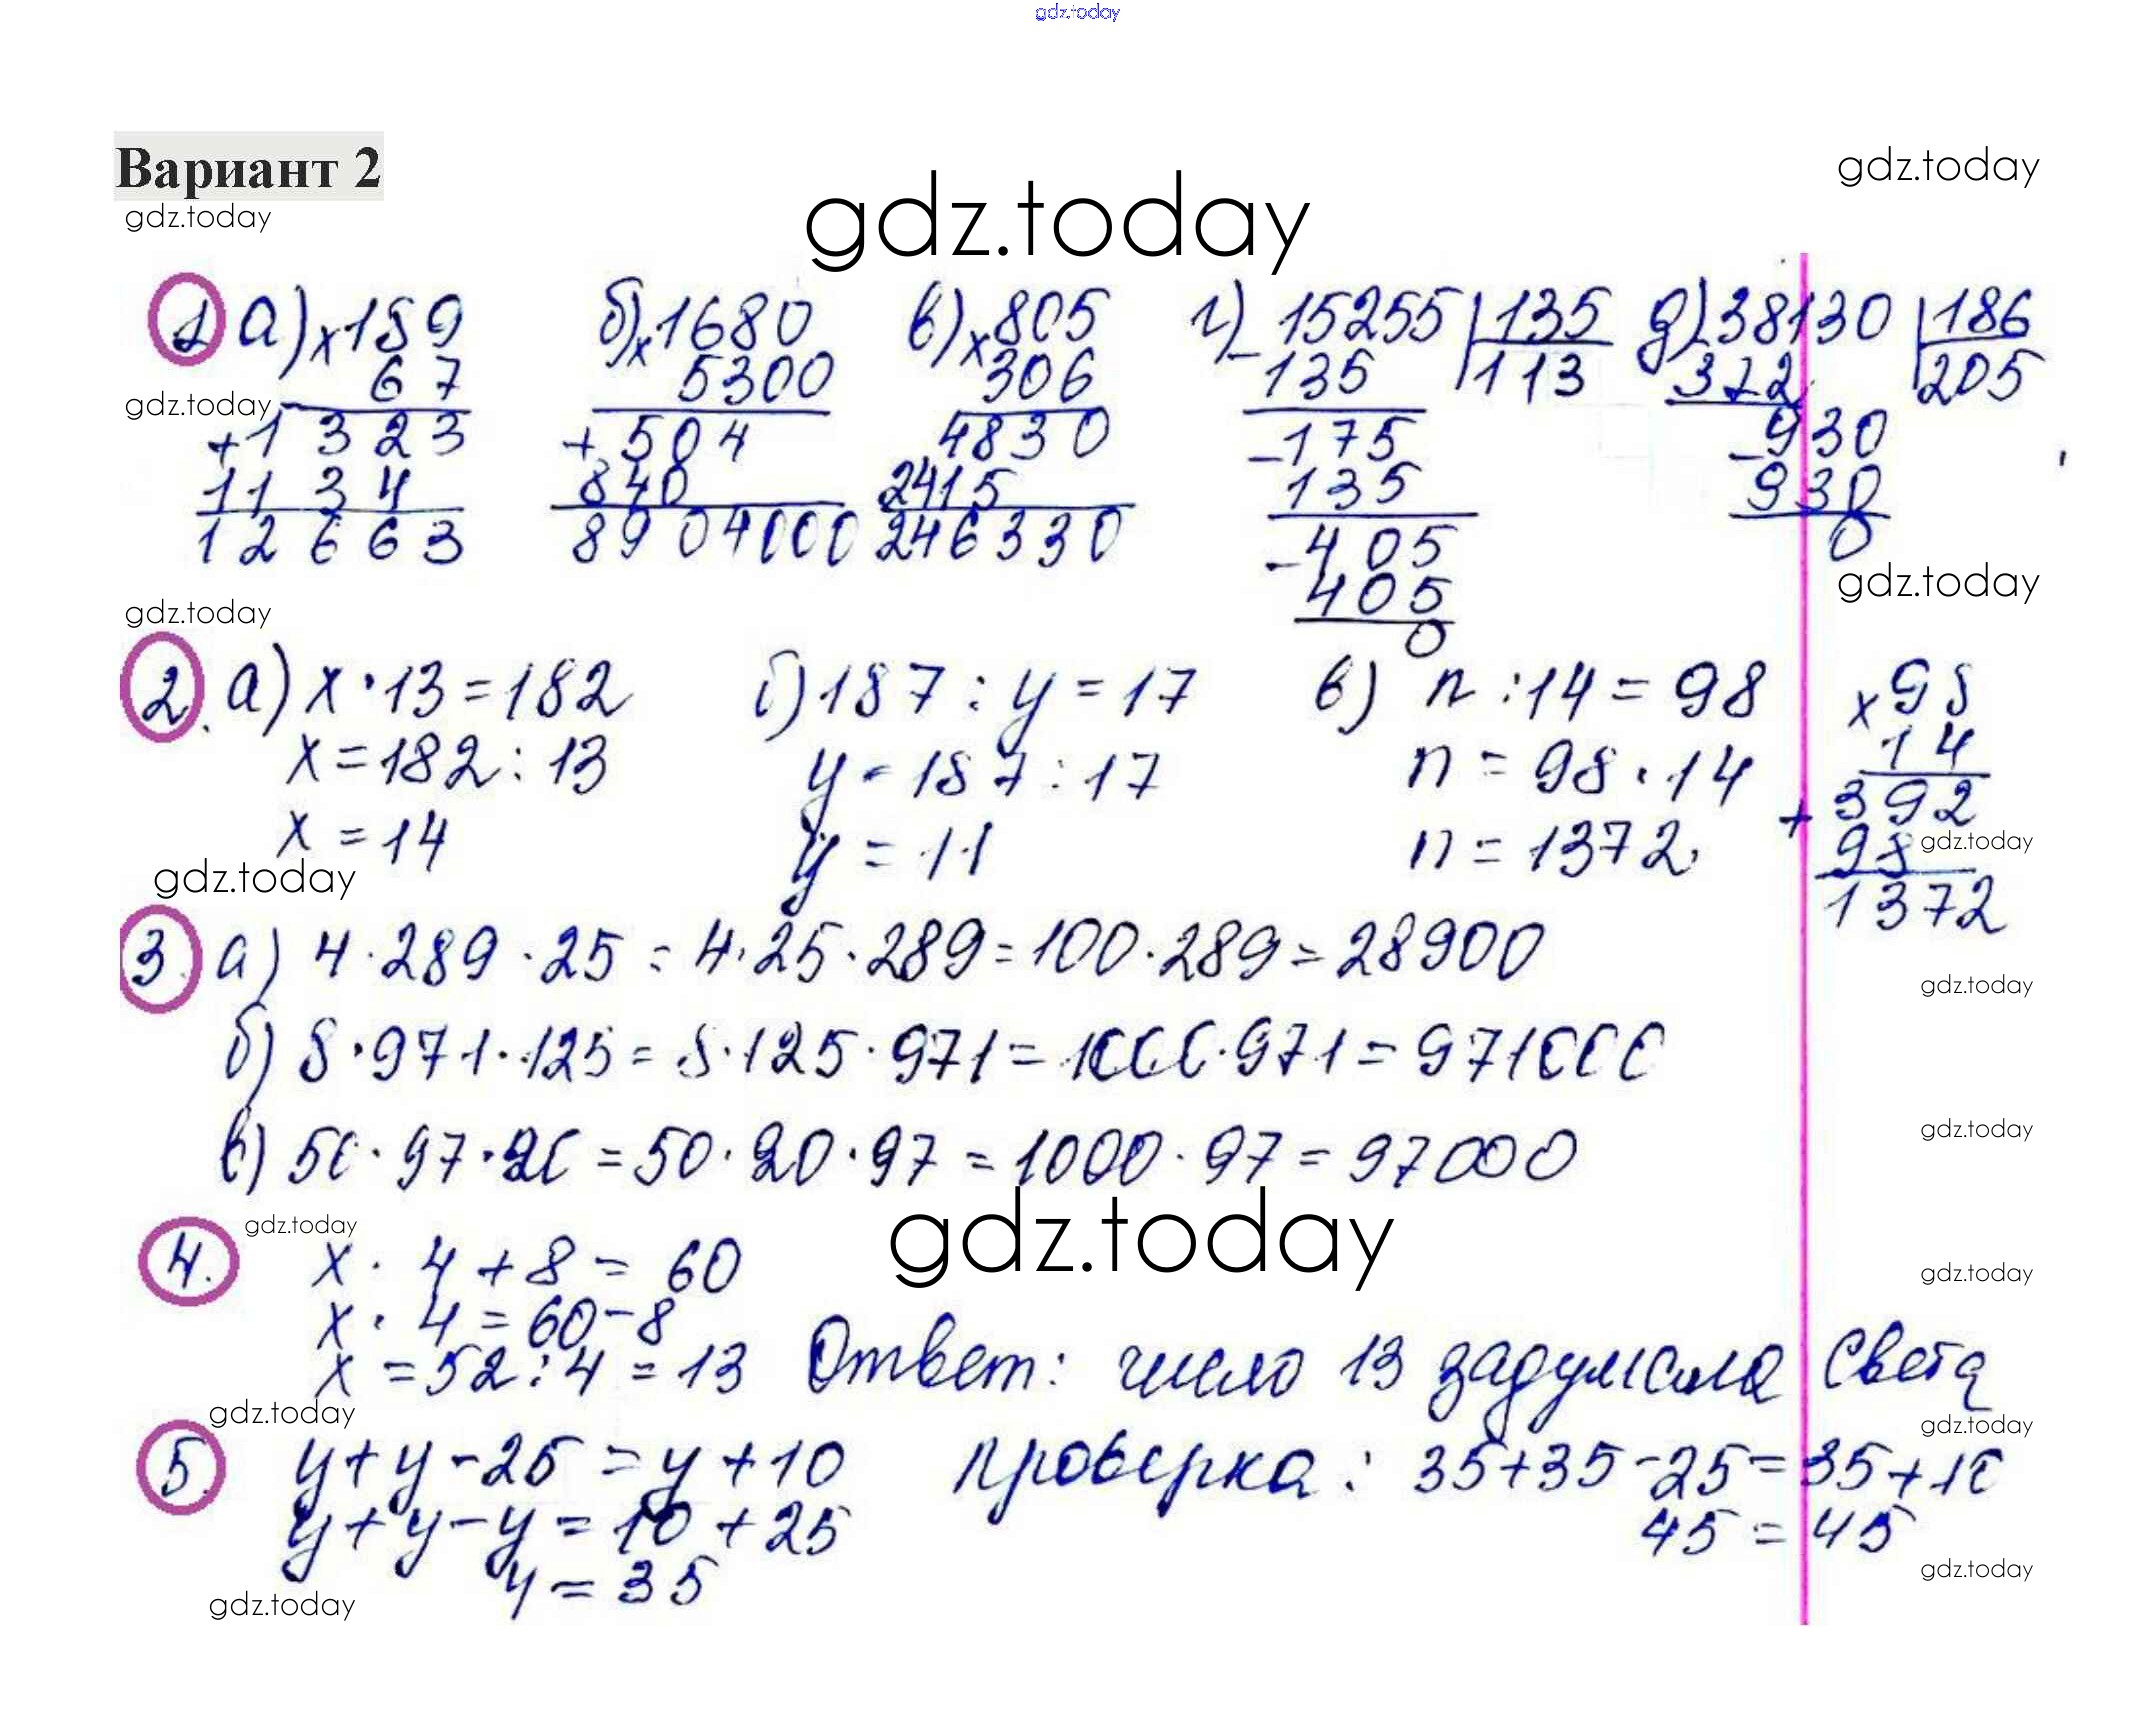 gdz.today
Вариант 2
gdz.today
gdz.today
gdz.today
1 а) ×189 б) ×1680 в) ×805 г) 15255 | 135 д) 38130 | 186
67 5300 306 - 135 113 - 372 205
gdz.today
+1323 + 504 4830 - 175 - 930
1134 840 2415 135 930
12663 8904000 246330 - 405 0
405
gdz.today
gdz.today
0
2. а) x · 13 = 182 б) 187 : y = 17 в) n : 14 = 98 ×98
x = 182 : 13 y = 187 : 17 n = 98 · 14 14
x = 14 y = 11 n = 1372 + 392
gdz.today
98
gdz.today
1372
3. а) 4 · 289 · 25 = 4 · 25 · 289 = 100 · 289 = 28900
gdz.today
б) 8 · 971 · 125 = 8 · 125 · 971 = 1000 · 971 = 971000
gdz.today
в) 50 · 97 · 20 = 50 · 20 · 97 = 1000 · 97 = 97000
gdz.today
gdz.today
4. x · 4 + 8 = 60
gdz.today
x · 4 = 60 - 8
x = 52 : 4 = 13 Ответ: число 13 задумала Света
gdz.today
gdz.today
5. y + y - 25 = y + 10 Проверка: 35 + 35 - 25 = 35 + 10
y + y - y = 10 + 25 45 = 45
y = 35
gdz.today
gdz.today